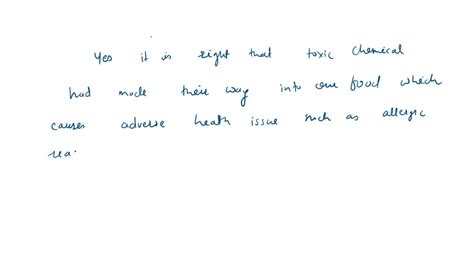 Yes it is right that toxic chemical
had made their way into our food which
causes adverse heath issue such as allergic
rea.